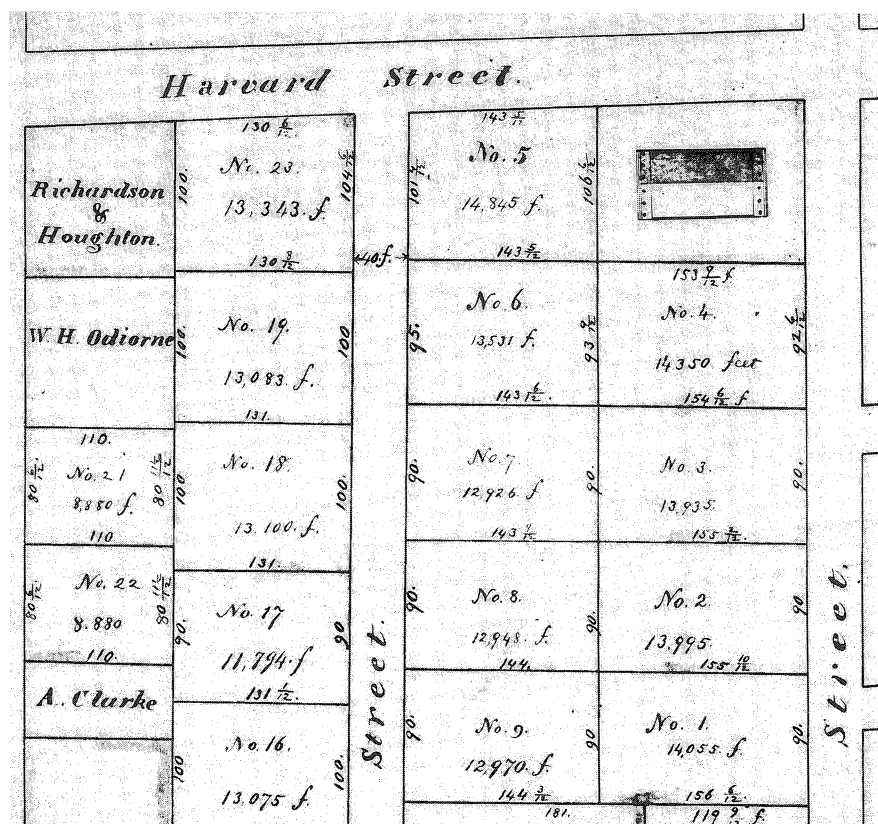 Harvard Street.
Richardson
&
Houghton.
W. H. Odiorne
110.
80 6/12
No. 21
80 11/12
8,880 f.
110
80 6/12
No. 22
80 11/12
8.880
110.
A. Clarke
130 6/12
No. 23.
100.
104 6/12
13,343. f.
130 8/12
40 f.
100.
No. 19.
100
13,083. f.
131.
No. 18.
100
100.
13,100. f.
131.
No. 17
90.
90
11,794. f
131 1/12.
No. 16.
100
100.
13,075 f.
Street.
No. 5
14,845 f.
143 5/12
No. 6.
95.
13,531 f.
143 6/12.
No. 7
90.
90.
12,926 f
143
No. 8.
90.
90.
12,948. f.
144.
No. 9.
90.
90
12,970. f.
144 3/12
181.
153 9/12 f.
No. 4.
92 6/12
14350 feet
154 6/12 f
No. 3.
90.
13,935.
155 2/12.
No. 2
90
13,995.
155 10/12
No. 1.
90.
14,055. f
156 6/12.
119 9/12 f.
Street.